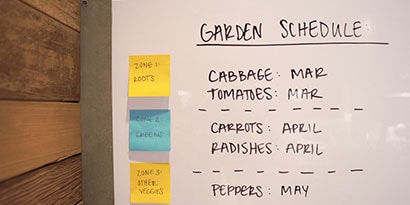 GARDEN SCHEDULE:
ZONE 1:
ROOTS
CABBAGE: MAR
TOMATOES: MAR
ZONE 2:
GREENS
CARROTS: APRIL
RADISHES: APRIL
ZONE 3:
OTHER
VEGGIES
PEPPERS: MAY